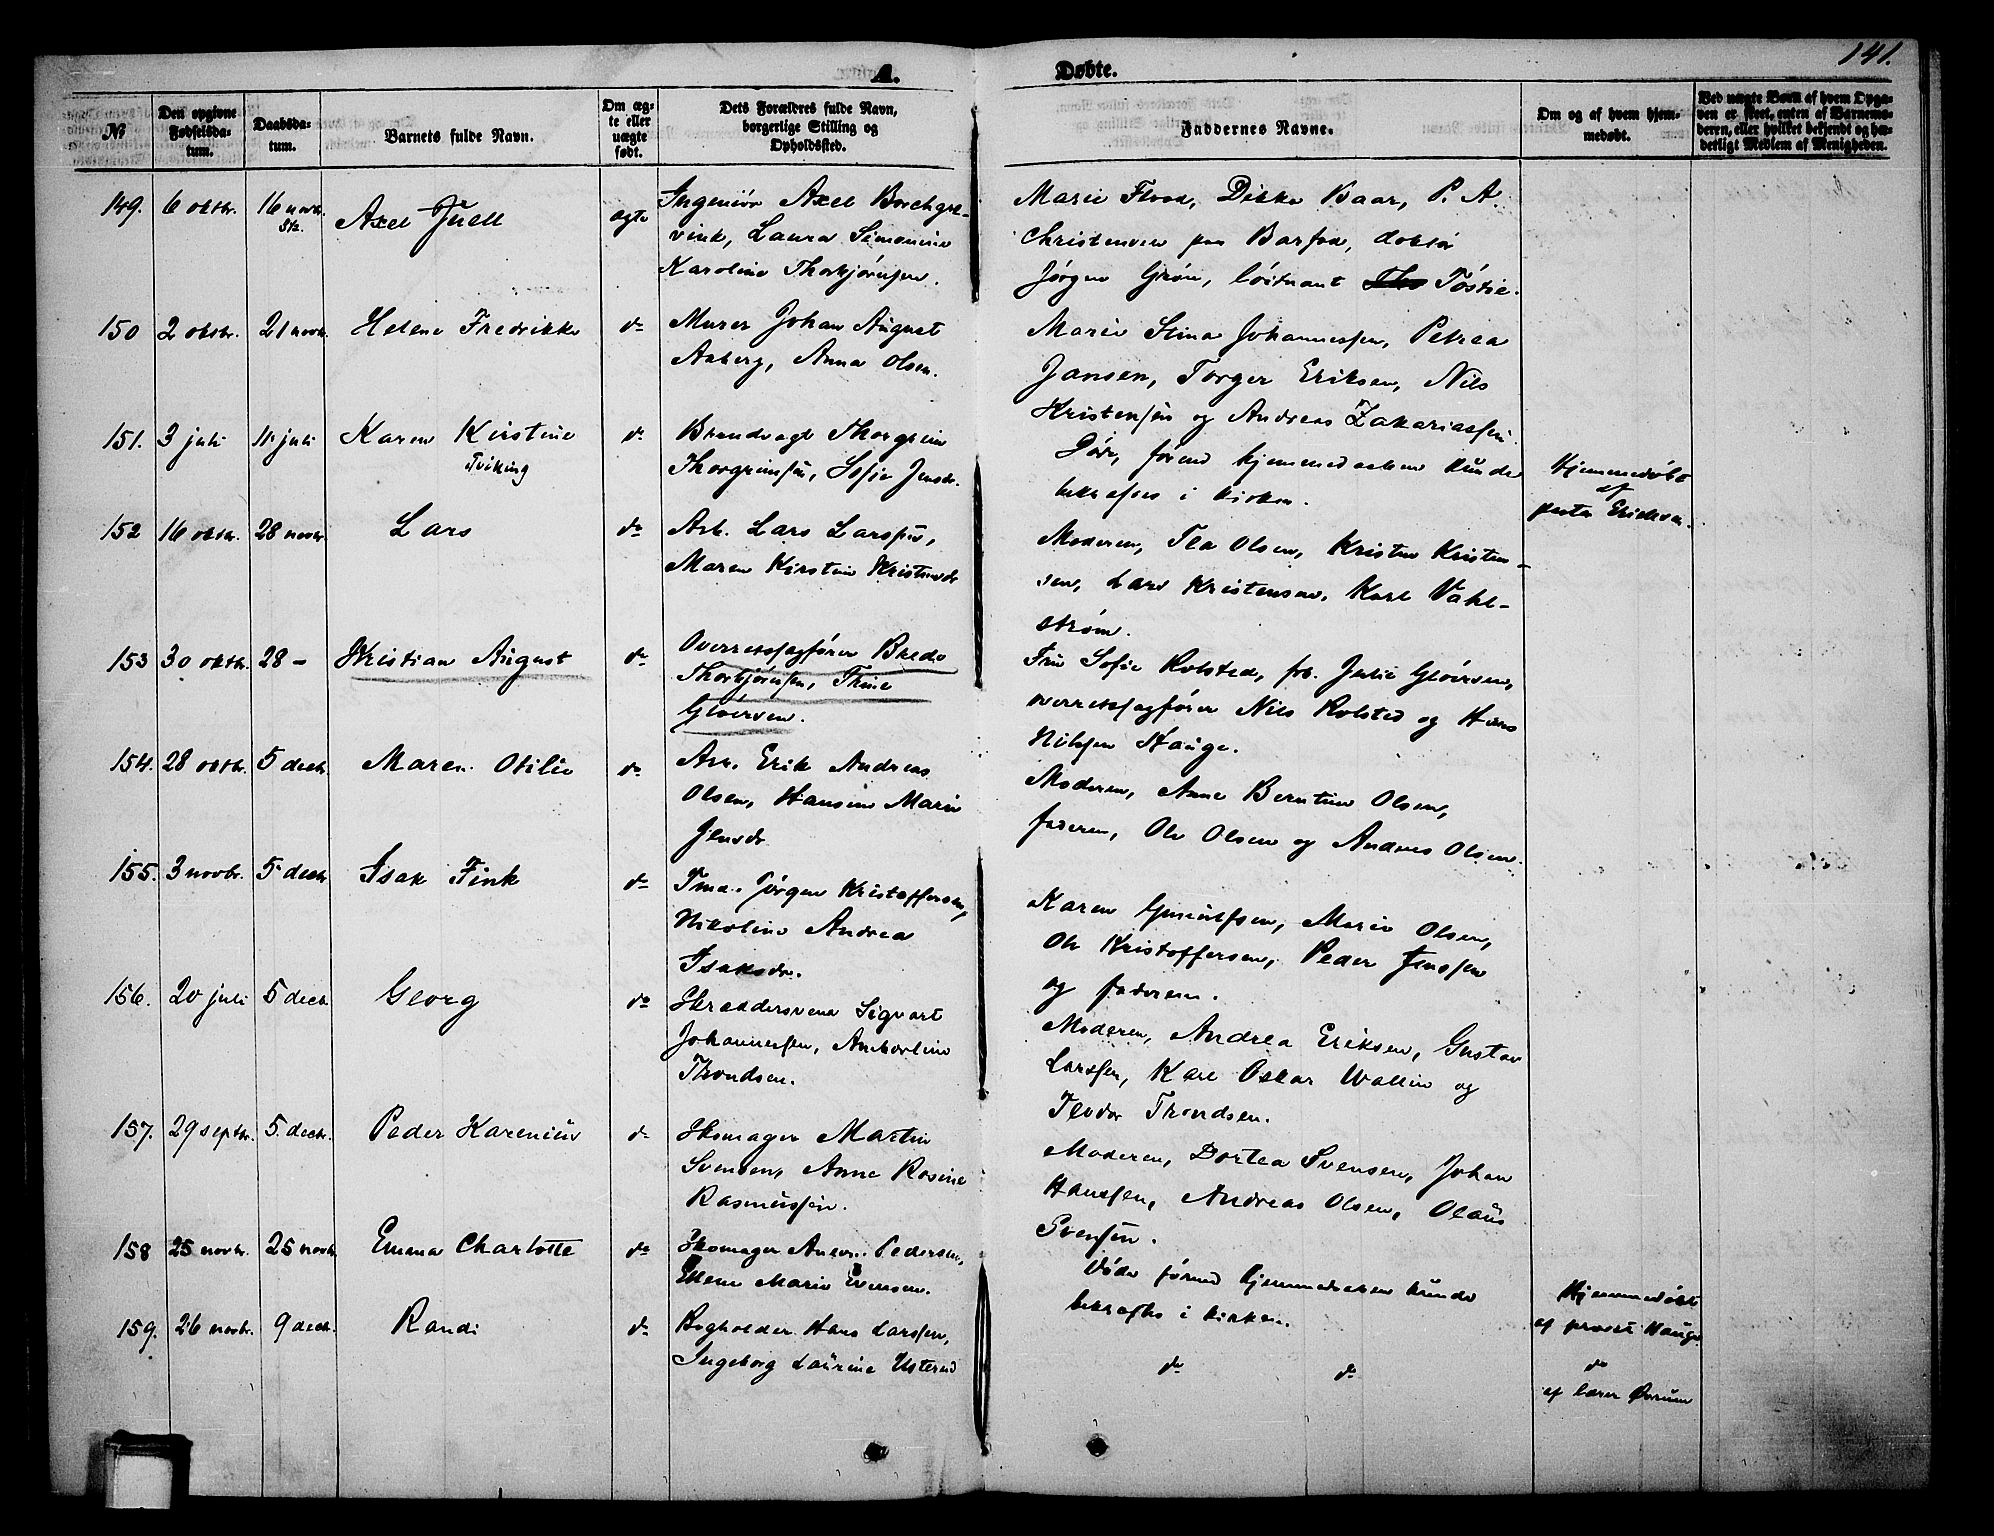 141.
A. Døbte.
№
Den opgivne Fødselsdatum.
Daabsdatum.
Barnets fulde Navn.
Om ægte eller uægte født.
Dets Forældres fulde Navn, borgerlige Stilling og Opholdssted.
Faddernes Navne.
Om og af hvem hjemmedøbt.
Ved uægte Børn af hvem Opgaven er skeet, enten af Barnemoderen, eller hvilket bekjendt og hæderligt Medlem af Menigheden.
149. 6 oktbr. 16 novbr. Axel Juell ægte
Ingeniör Axel Borchgre-
vink, Laura Simonine
Karoline Thorbjörnsen.
Marie Flood, Dikka Baar, P. A.
Christensen paa Barfod, doktor
Jørgen Grøn, löitnant Töstie.
150 2 oktbr. 21 novbr. Helene Fredrikke do
Murer Johan August
Aaberg, Anna Olsen.
Marie Stina Johannessen, Petrea
Jansen, Torger Eriksen, Nils
Kristensen og Andreas Zakariassen.
151. 3 juli 11 juli Karen Kirstine do
Tviking
Brandvagt Thorgrim
Thorgrimsen, Sofie Jensdr.
Död, förend hjemmedaaben kunde
bekræftes i kirken.
Hjemmedøbt
af
pastor Erichsen.
152 16 oktbr. 28 novbr. Lars do
Arb. Lars Larssen,
Maren Kirstine Kristensdr
Moderen, Tea Olsen, Kristen Kristen-
sen, Lars Kristensen, Karl Vahl-
strøm.
153 30 oktbr. 28 - Kristian August do
Overretssagförer Bredo
Thorbjörnsen, Thine
Glöersen.
Fru Sofie Rolsted, frk. Julie Glöersen,
overretssagförer Nils Rolsted og Hans
Nilssen Hauge.
154. 28 oktbr. 5 decbr. Maren Otilie do
Arb. Erik Andreas
Olsen, Hansine Marie
Jensdr.
Moderen, Anne Berntine Olsen,
faderen, Ole Olsen og Andreas Olsen.
155. 3 novbr. 5 decbr Isak Fink do
Tmd. Jørgen Kristoffersen,
Nikoline Andrea
Isaksdr.
Karen Gunulfsen, Marie Olsen,
Ole Kristoffersen, Peder Jenssen
og faderen.
156. 20 juli 5 decbr. Georg do
Skræddersvend Sigvart
Johannessen, Amborline
Throndsen.
Moderen, Andrea Eriksen, Gustav
Larssen, Karl Oskar Wallin og
Teodor Throndsen.
157. 29 septbr. 5. decbr. Peder Karenius do
Skomager Martin
Svensen, Anne Rosine
Rasmussen.
Moderen, Dortea Svensen, Johan
Hanssen, Andreas Olsen, Olaüs
Svensen.
158 25 novbr. 25 novbr Emma Charlotte do
Skomager Pedersen,
Ellen Marie Evensen.
Döde förend hjemmedaaben kunde
bekræftes i kirken.
Hjemmedøbt
af provst Hauge
159. 26 novbr. 9 decbr. Randi do
Bogholder Hans Larssen,
Ingeborg Laurine Usterud
do do
do
af lærer Ørrum